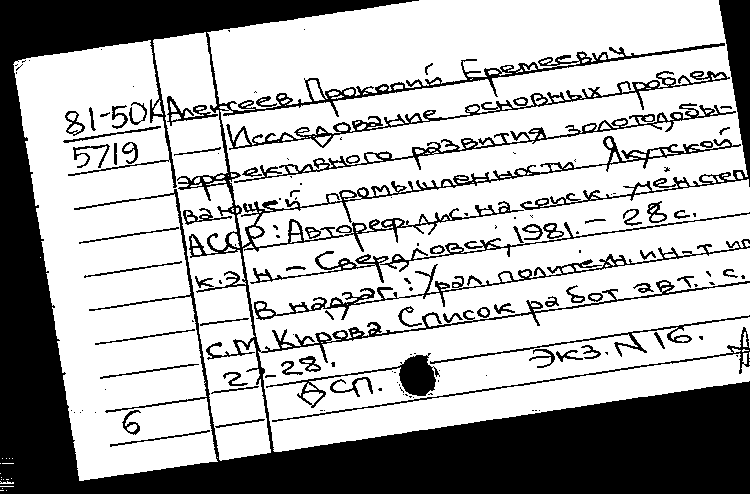 81-50К Алексеев, Прокопий Еремеевич.
5719 Исследование основных проблем
эффективного развития золотодобы-
вающей промышленности Якутской
АССР: Автореф. дис. на соиск. учен. степ
к.э.н. – Свердловск, 1981. – 28 с.
В надзаг.: Урал. политехн. ин-т им
с.м. Кирова. Список работ авт.: с.
27-28.
сп. Экз. N 16.
6